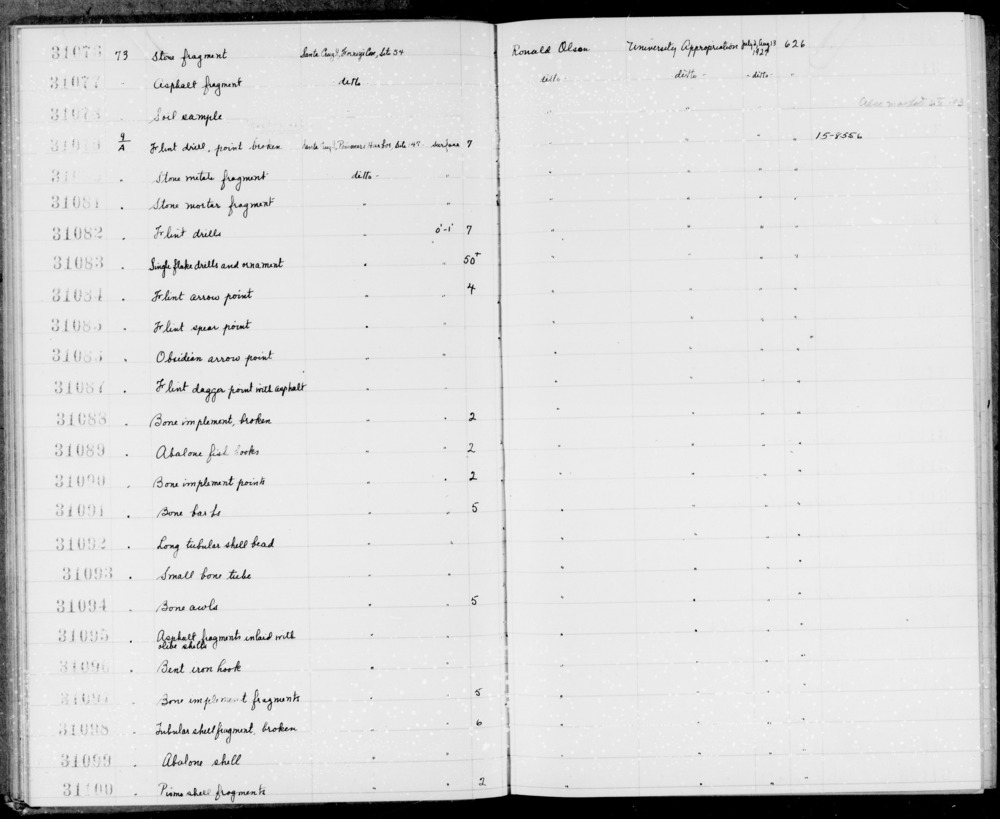 31076 73 Stone fragment Santa Cruz I, Site 34 Ronald Olson University Appropriation 626
31077 " Asphalt fragment ditto ditto - ditto - - ditto - "
31078 Soil sample " "
9/A Flint drill, point broken Santa Cruz I, Prisoners Harbor, Site surface 7 " " " 15-8556
Stone metate fragment ditto - " " " " "
31081 " Stone mortar fragment " " " " " "
31082 " Flint drills " 0'-1' 7 " " " "
31083 " Single flake drills and ornament " " 50+ " " " "
31084 " Flint arrow point " " 4 " " " "
31085 " Flint spear point " " " " " "
31086 " Obsidian arrow point " " " " " "
31087 " Flint dagger point with asphalt " " " " " "
31088 " Bone implement, broken " " 2 " " " "
31089 " Abalone fish hooks " " 2 " " " "
31090 " Bone implement points " " 2 " " " "
31091 " Bone barbs " " 5 " " " "
31092 " Long tubular shell bead " " " " " "
31093 " Small bone tube " " " " " "
31094 " Bone awls " " 5 " " " "
31095 " Asphalt fragments inlaid with
olive shells " " " " " "
31096 " Bent iron hook " " " " " "
31097 " Bone implement fragments " " 5 " " " "
31098 " Tubular shell fragment, broken " " 6 " " " "
31099 Abalone shell " " " " " "
31100 " Pismo shell fragments " " 2 " " " "